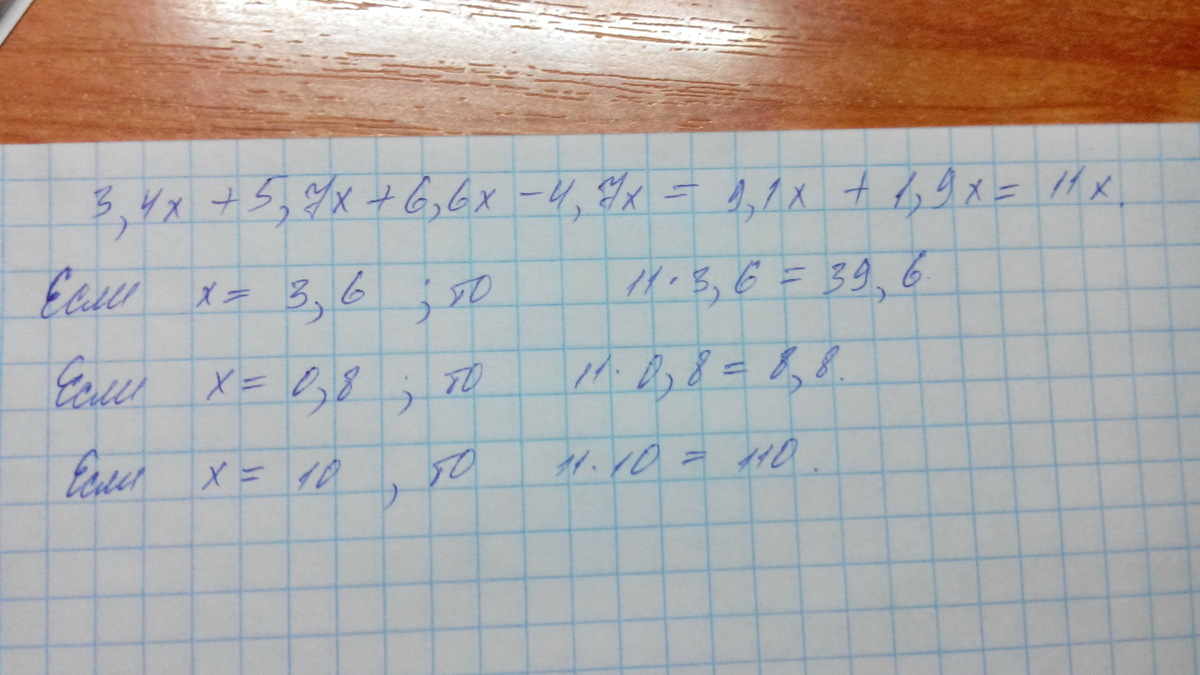 3,4x + 5,7x + 6,6x - 4,7x = 9,1x + 1,9x = 11x.
Если x = 3,6 ; то 11·3,6 = 39,6.
Если x = 0,8 ; то 11·0,8 = 8,8.
Если x = 10 , то 11·10 = 110.